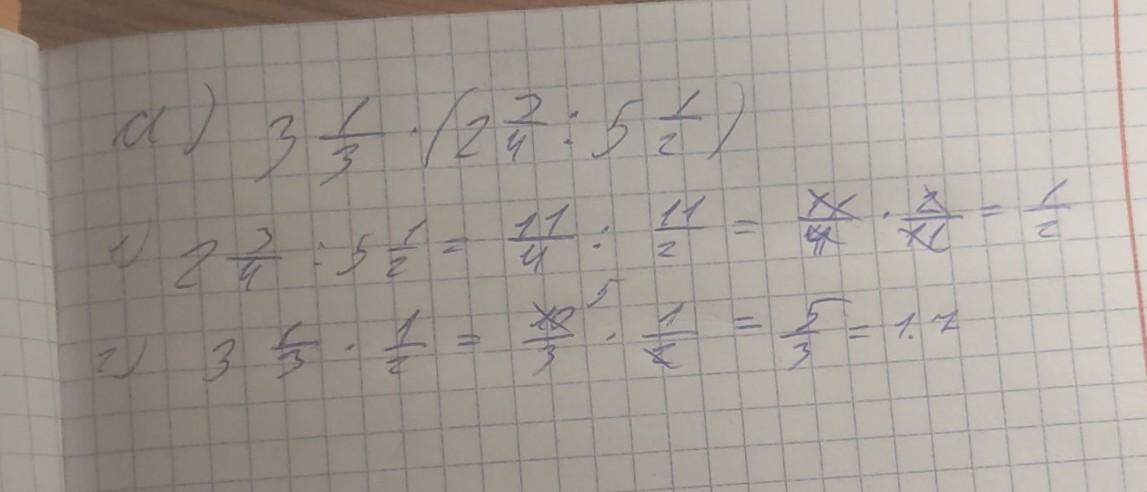 a) 3 1/3 · (2 3/4 : 5 1/2)
1) 2 3/4 : 5 1/2 = 11/4 : 11/2 = 11/4 · 2/11 = 1/2
2) 3 1/3 · 1/2 = 10/3 5 · 1/2 = 5/3 = 1.7